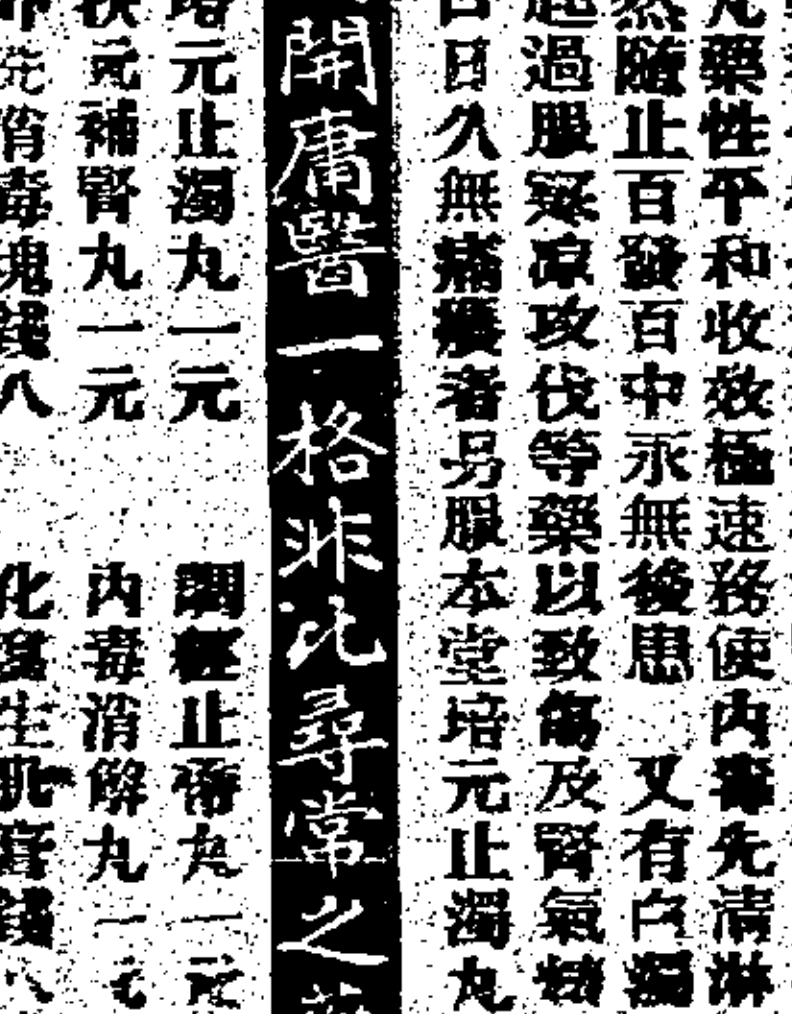 藥性平和收效極速務使內毒先清淋
隨止百發百中永無後患 又有白濁
起過服寒凉攻伐等藥以致傷及腎氣
日久無痛癢者另服本堂培元止濁丸
開庸醫一格非比尋常之
培元止濁丸一元 調經止帶丸一元
扶元補腎丸一元 內毒消解丸一元
洗消毒塊錢八 化腐生肌膏錢八